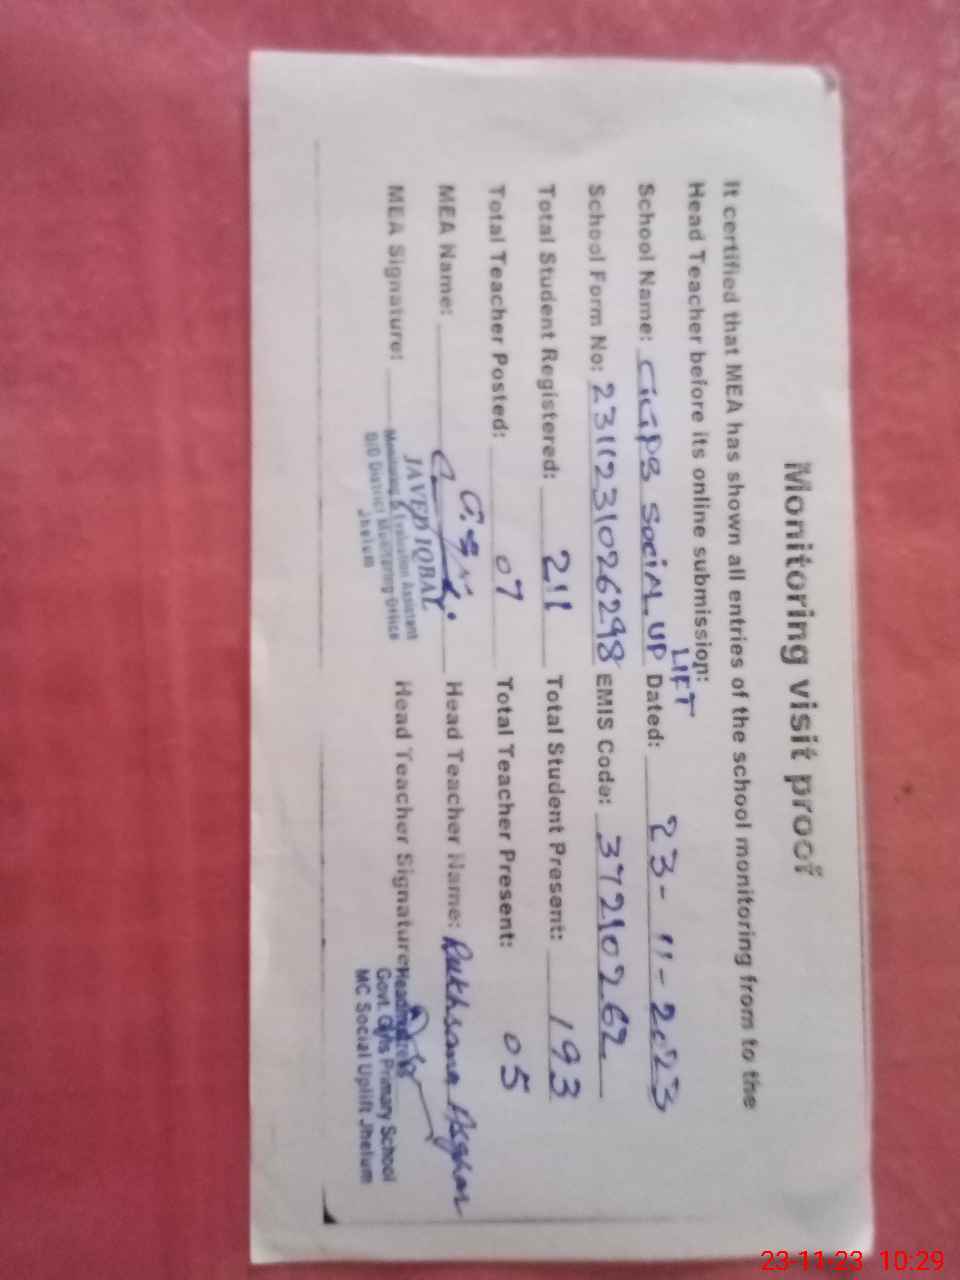 Monitoring visit proof
It certified that MEA has shown all entries of the school monitoring from to the
Head Teacher before its online submission:
School Name: GGPS Social UP LIFT Dated: 23-11-2023
School Form No: 2311231026298 EMIS Code: 37210262
Total Student Registered: 211 Total Student Present: 193
Total Teacher Posted: 07 Total Teacher Present: 05
MEA Name: Head Teacher Name: Rukhsana Asghar
MEA Signature: Head Teacher Signature:
JAVED IQBAL
Monitoring & Evaluation Assistant
O/O District Monitoring Office
Jhelum
Headmistress
Govt. Girls Primary School
MC Social Uplift Jhelum
23-11-23 10:29